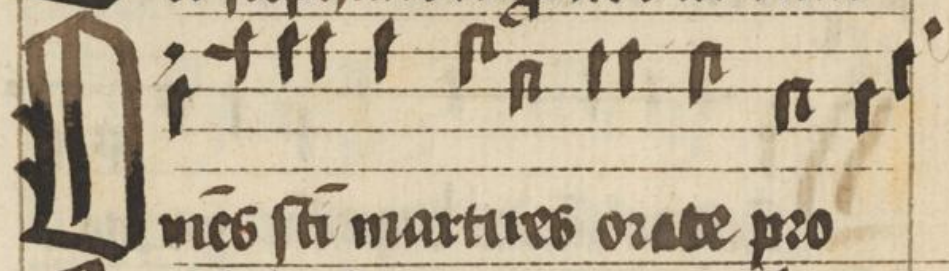 Om̄es sc̄ti martires orate pro